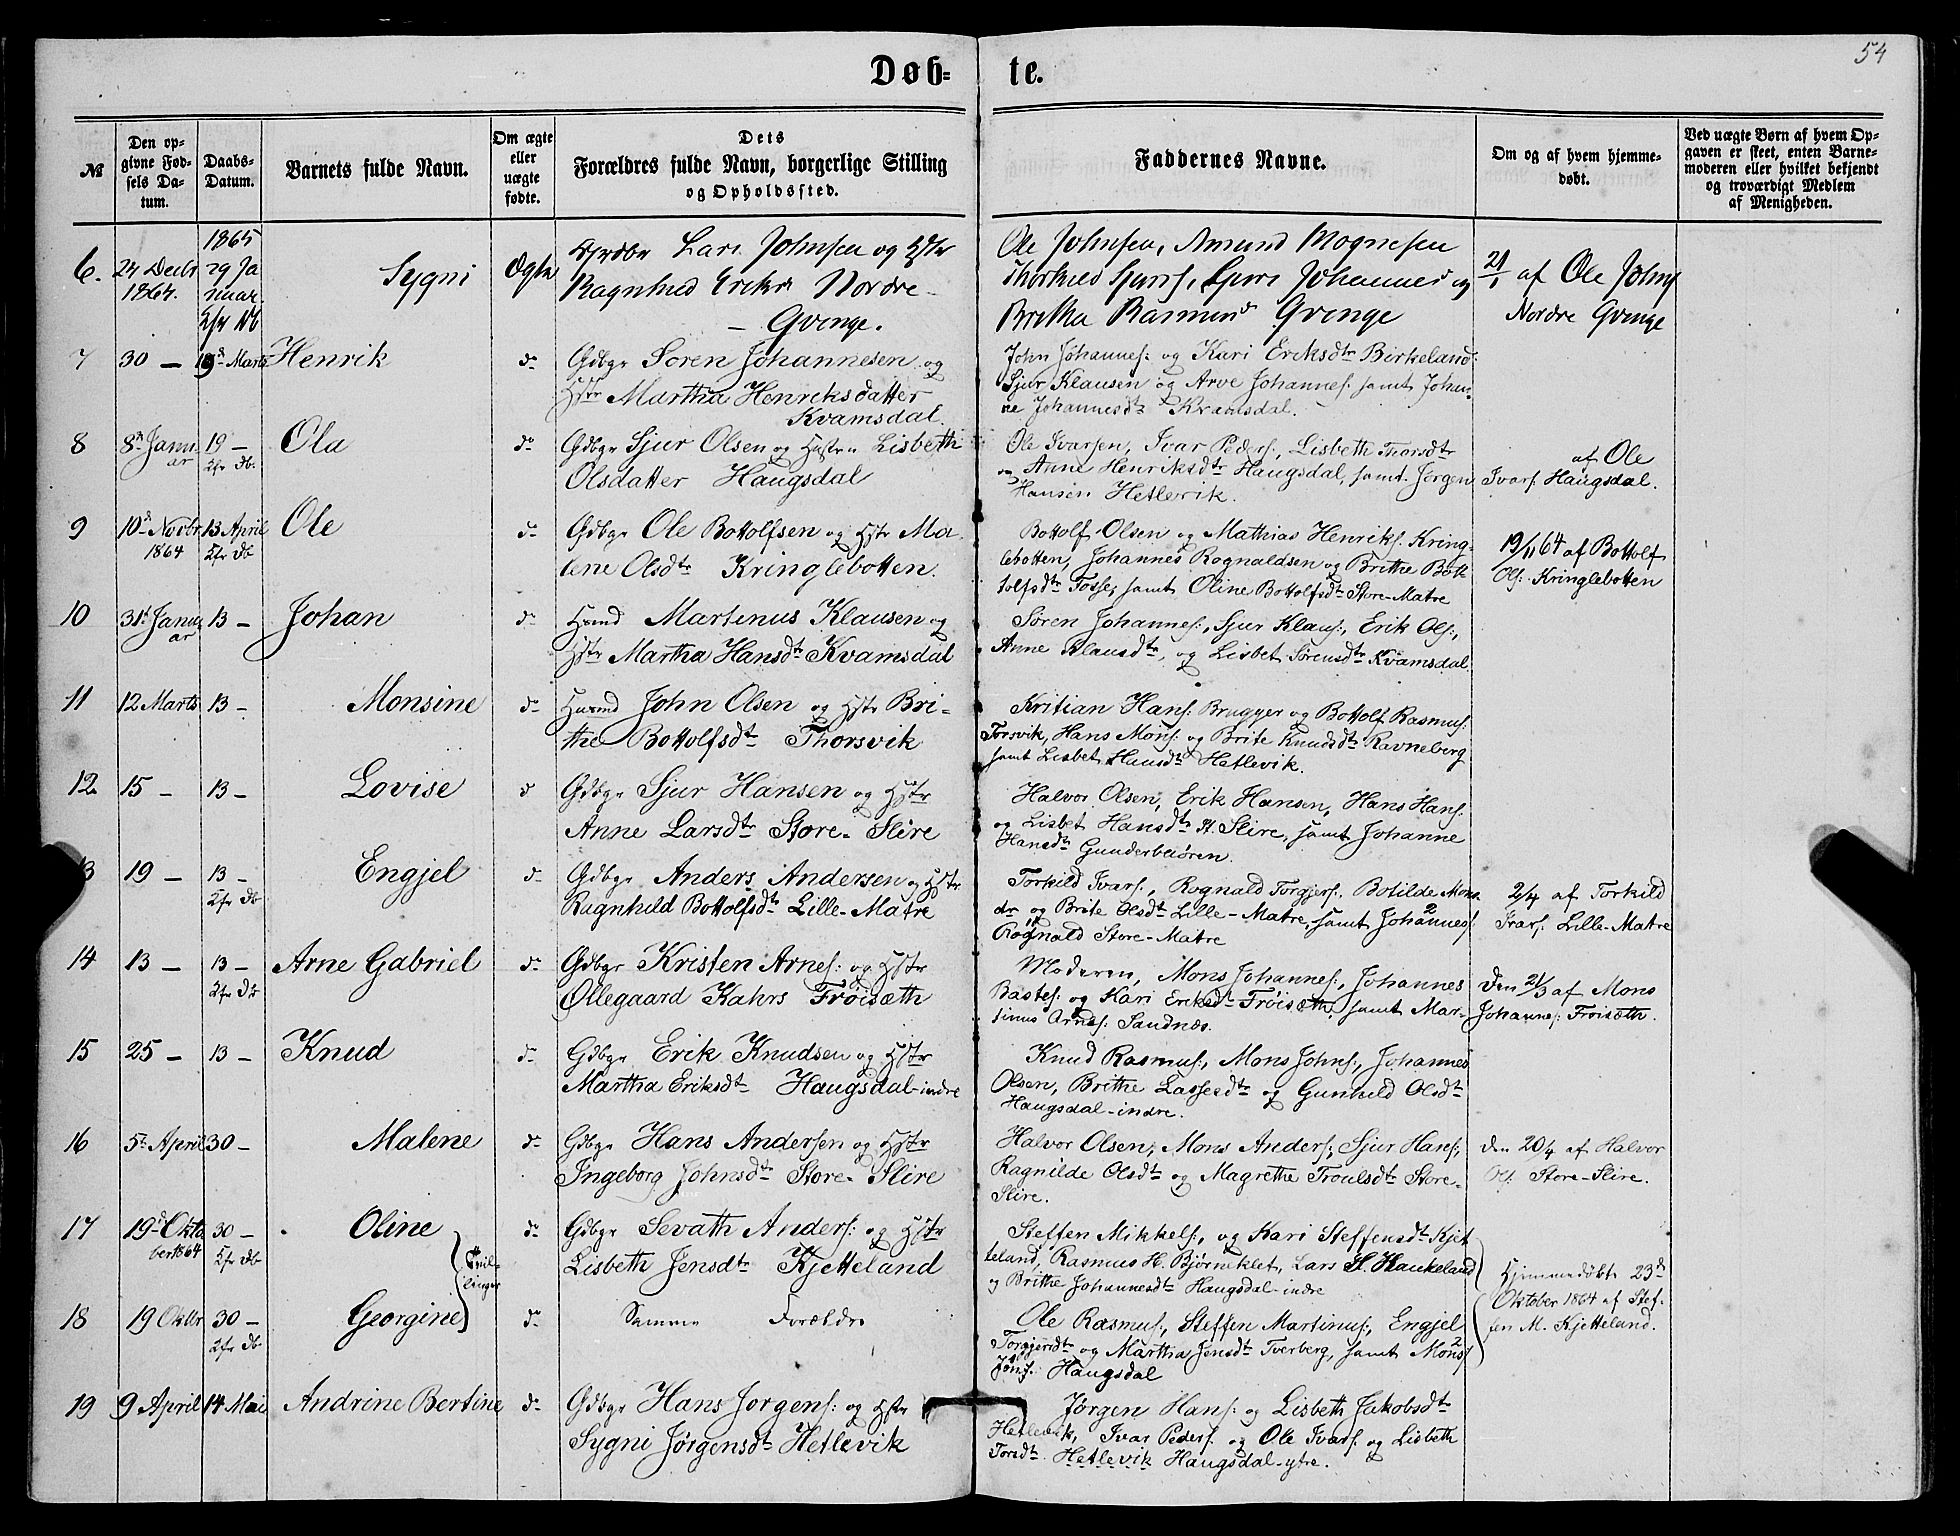 54
Døb- te.
№
Den op-
givne Fød-
sels Da-
tum.
Daabs-
Datum.
Barnets fulde Navn.
Om ægte
eller
uægte
fødte.
Dets
Forældres fulde Navn, borgerlige Stilling
og Opholdssted.
Faddernes Navne.
Om og af hvem hjemme-
døbt.
Ved uægte Børn af hvem Op-
gaven er skeet, enten Barne-
moderen eller hvilket bekjendt
og troværdigt Medlem
af Menigheden.
6. 24 Decbr 1864. 1865 29 Januar Sygni Ægte
Lars Johnsen og Hstr
Ragnhild Eriksd Nordre
- Qvinge.
Ole Johnsen, Amund Mognesen
Thorkild Sjurs, Sjuri Johannesd og
Britha Rasmusd Qvinge
21/1 af Ole Johns
Nordre Qvinge
7 30 - 19d Marts Henrik do
Gdbgr Søren Johannesen og
Hstr Martha Henriksdatter
Kvamsdal
John Johannes: og Kari Eriksdtr Birkeland
Sjur Klausen og Arve Johannes: samt Johan-
ne Johannesdtr Kvamsdal.
8 8d Januar 19 - Kfr Db. Ola do
Gdbgr Sjur Olsen og Hustru Lisbeth
Olsdatter Haugsdal
Ole Ivarsen, Ivar Peders:, Lisbeth Thorsdtr
og Anne Henriksdtr Haugsdal, samt Jørgen
Hansen Hetlevik.
af Ole
Ivars Haugsdal.
9 10d Novbr 1864 13 April Kfr Db Ole do
Gdbgr Ole Bottolfsen og Hstr Ma-
lene Olsdtr Kringlebotten.
Bottolf Olsen og Mathias Henriks: Kring-
lebotten, Johannes Rognaldsen og Brithe Bot-
tolfsdtr Fosse, samt Oline Bottolfsdtr Store-Matre
19/11 64 af Bottolf
Ols: Kringlebotten
10 31d Januar 13 - Johan do
Husmd Martinus Klausen og
Hstr Martha Hansdtr Kvamsdal
Søren Johannes:, Sjur Klaus:, Erik Ols:,
Anne Klausdtr, og Lisbet Sørensdtr Kvamsdal.
11 12 Marts 13 - Monsine do
Husmd John Olsen og Hstr Bri-
the Bottolfsdtr Thorsvik
Kritian Hans: Brugger og Bottolf Rasmus:
Torsvik, Hans Mons: og Brite Knudsdtr Ravneberg
samt Lisbet Hansdtr Hetlevik.
12 15 - 13 - Lovise do
Gdbgr Sjur Hansen og Hstr
Anne Larsdtr Store-Slire
Halvor Olsen, Erik Hansen, Hans Hans:
og Lisbet Hansdtr St. Slire, samt Johanne
Hansdtr
3 19 - 13 - Kfr Db Engjel do
Gdbgr Anders Andersen og Hstr
Ragnhild Bottolfsdtr Lille-Matre
Torkild Ivars:, Rognald Torgjers: Botilde Mons-
dr og Brite Olsdtr Lille-Matre, samt Johannes
Rognald Store-Matre
2/4 af Torkild
Ivars: Lille-Matre
14 13 - 13 - Kfr Db Arne Gabriel do
Gdbgr Kristen Arnes: og Hstr
Øllegaard Kahrs Frøisæth
Moderen, Mons Johannes:, Johannes
Bastes: og Kari Eriksdtr Frøisæth, samt Mar-
tinus Arnes: Sandnæs.
Den 21/3 af Mons
Johannes: Frøisæth.
15 25 - 13 - Knud do
Gdbgr Erik Knudsen og Hstr
Martha Eriksdtr Haugsdal-indre
Knud Rasmus:, Mons Johns:, Johannes
Olsen, Brithe Lassesdtr og Gunhild Olsdtr
Haugsdal-indre.
16 5te April 30 - Malene do
Gdbgr Hans Andersen og Hstr
Ingeborg Johnsdtr Store-Slire
Halvor Olsen, Mons Anders:, Sjur Hans:,
Ragnilde Olsdtr og Magrethe Troulsdtr Store-
Slire.
Den 20/4 af Halvor
Ols: Store-Slire.
17 19d Oktober 1864 30 - Kfr Db Oline do
Tvillinger
Gdbgr Sevath Anders: og Hstr
Lisbeth Jensdtr Kjetteland
Steffen Mikkels:, og Kari Steffensdtr Kjet-
teland, Rasmus H. Bjørneklet, Lars H. Haukeland
og Brithe Johannesdtr Haugsdal-indre
Hjemmedøbt 23d
Oktober 1864 af Stef-
fen M. Kjetteland.
18 19 Oktbr 30 - Kfr Db. Georgine do
Samme Forældre
Ole Rasmus:, Steffen Martinus:, Engjel
Torgjersdtr og Martha Jensdtr Tverberg, samt Mons
Jons: Haugsdal
19 9 April 14 Mai Andrine Bertine do
Gdbgr Hans Jørgens: og Hstr
Sygni Jørgensdtr Hetlevik
Jørgen Hans: og Lisbeth Jakobsdtr
Hetlevik, Ivar Peders: og Ole Ivars: og Lisbeth
Toredtr Hetlevik Haugsdal-ytre.